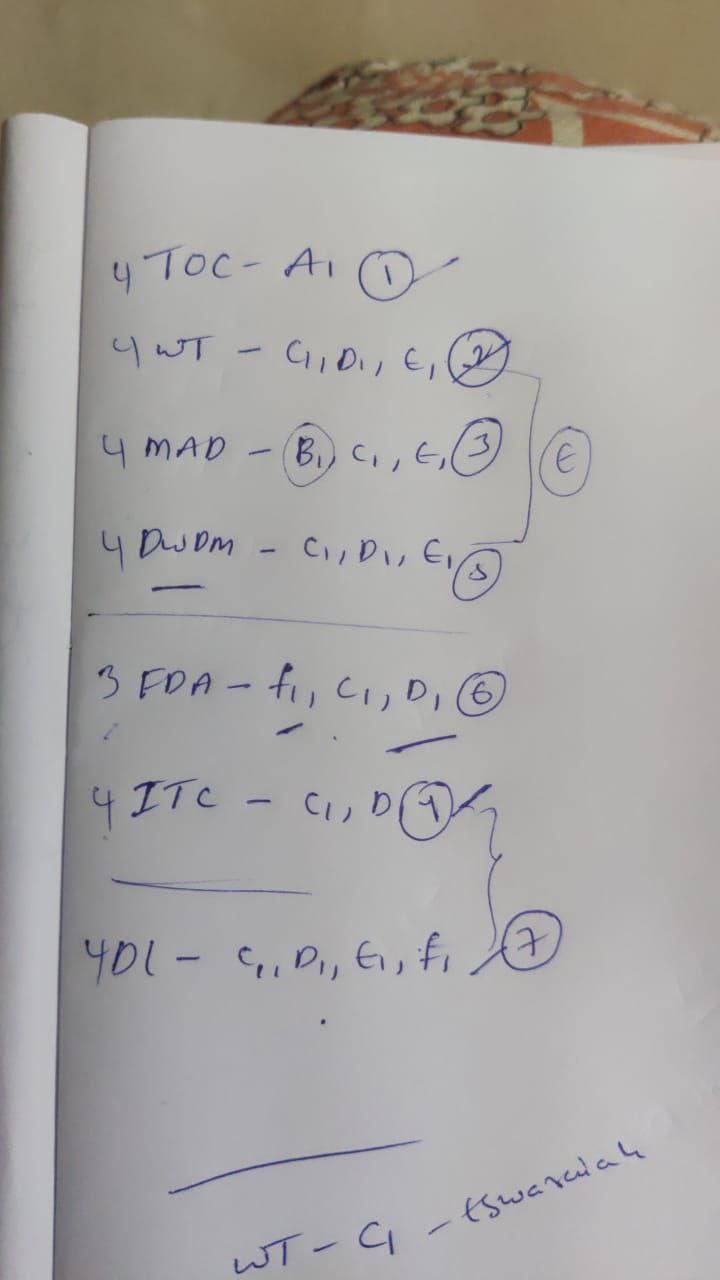 4 TOC - A1 1
4 WT - C1, D1, E1 2
4 MAD - B1, C1, E1 3
E
4 DWDM - C1, D1, E1 5
3 FDA - f1, C1, D1 6
4 ITC - C1, D 4
4DL - C1, D1, E1, f1 7
WT - C1 - Eswaraiah